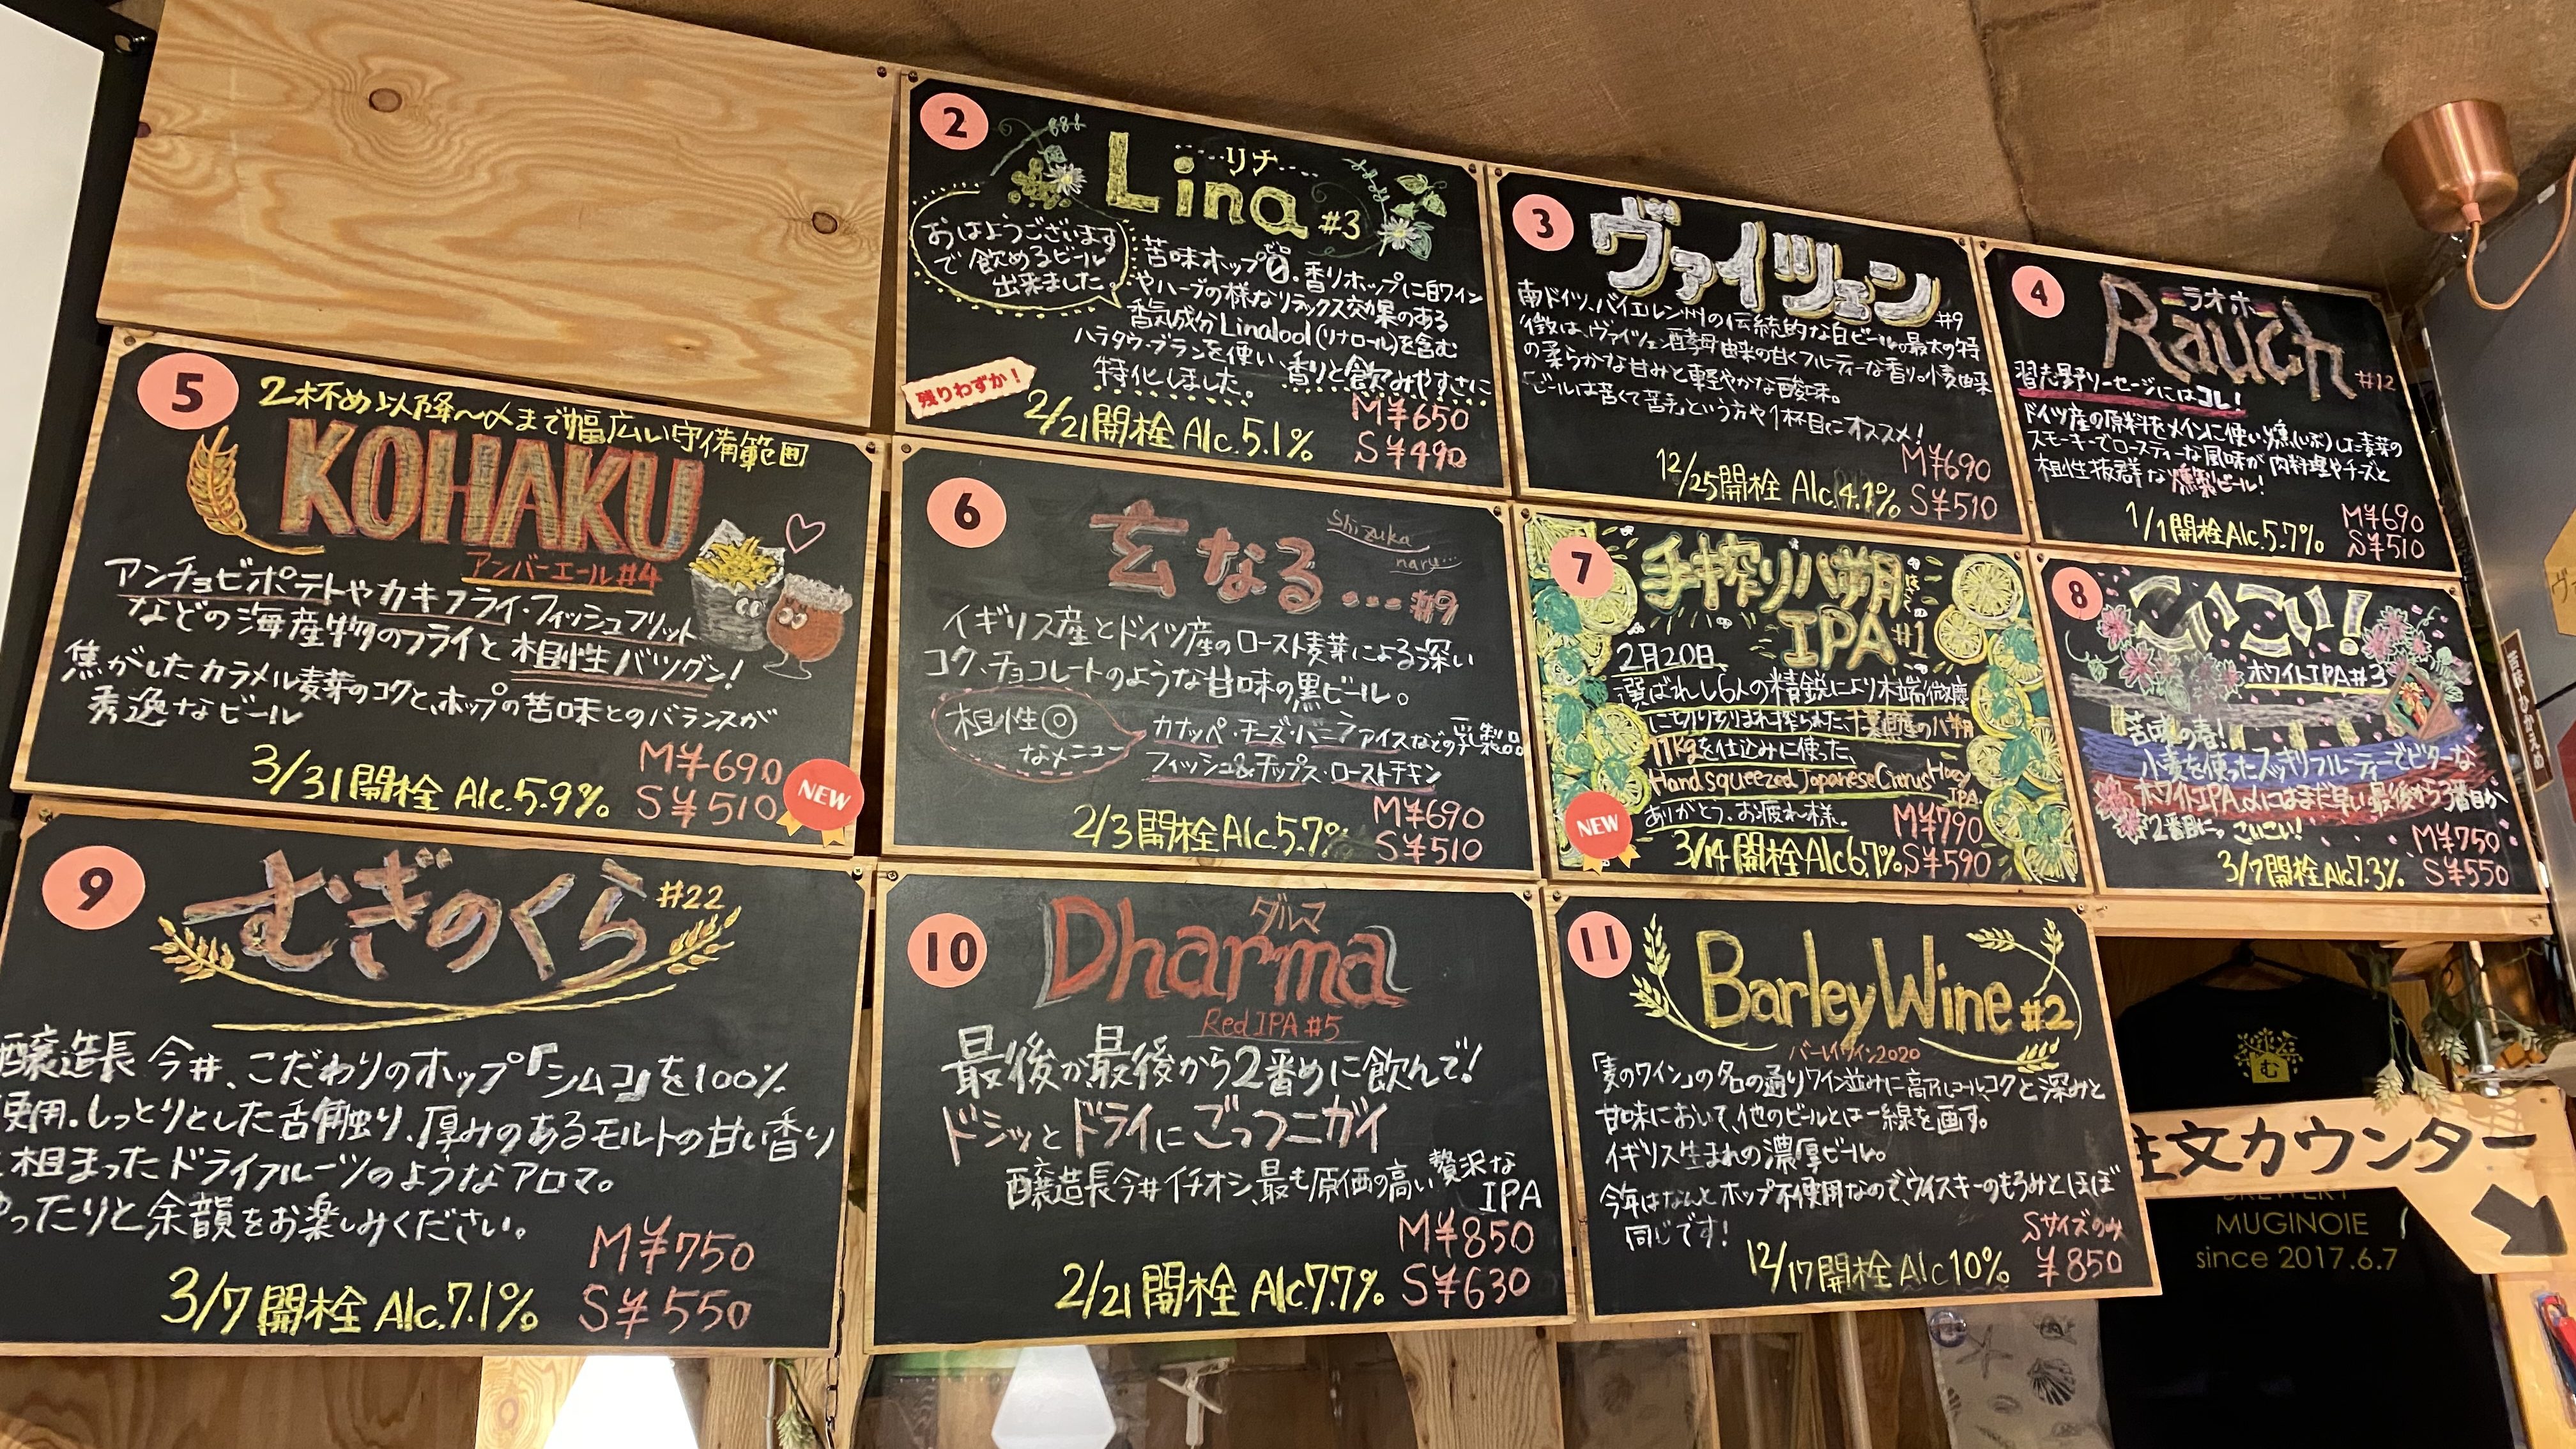 2
リナ
Lina #3
おはようございます
で飲めるビール
出来ました。
苦味ホップ0゙ロ、香りホップに白ワイン
やハーブの様なリラックス効果のある
香気成分Linalool(リナロール)を含む
ハラタウ・ブランを使い、香りと飲みやすさに
特化しました。
残りわずか!
2/21開栓 Alc.5.1%
M¥650
S¥490
3
ヴァイツェン #9
南ドイツ、バイエルン州の伝統的な白ビール。最大の特
徴は、ヴァイツェン酵母由来の甘くフルーティーな香り。小麦由来
の柔らかな甘みと軽やかな酸味。
ビールは苦くて苦手。という方や1杯目にオススメ!
12/25開栓 Alc.4.1%
M¥690
S¥510
4
ラオホ
Rauch #12
習志野ソーセージにはコレ!
ドイツ産の原料をメインに使い、燻(いぶ)した麦芽の
スモーキーでロースティーな風味が肉料理やチーズと
相性抜群な燻製ビール!
1/1開栓 Alc.5.7%
M¥690
S¥510
5
2杯め以降〜〆まで幅広い守備範囲
KOHAKU
アンバーエール#4
アンチョビポテトやカキフライ・フィッシュフリット
などの海産物のフライと相性バツグン!
焦がしたカラメル麦芽のコクと、ホップの苦味とのバランスが
秀逸なビール
3/31開栓 Alc.5.9%
M¥690
S¥510
NEW
6
玄なる... #9
Shizuka
naru...
イギリス産とドイツ産のロースト麦芽による深い
コク、チョコレートのような甘味の黒ビール。
相性◎
なメニュー
カナッペ・チーズ・バニラアイスなどの乳製品
フィッシュ&チップス・ローストチキン
2/3開栓 Alc.5.7%
M¥690
S¥510
7
手搾り八朔
はっさく
IPA #1
2月20日、
選ばれし6人の精鋭により木端微塵
に切り刻まれ搾られた千葉県産の八朔
11kgを仕込みに使った、
Hand squeezed Japanese Citrus Hazy
IPA
ありがとう、お疲れ様。
NEW
3/14開栓 Alc6.7%
M¥790
S¥590
8
こいこい!
ホワイトIPA#3
苦味の春!
小麦を使ったスッキリフルーティーでビターな
ホワイトIPA。〆にはまだ早い、最後から3番目か
2番目に。こいこい!
3/7開栓 Alc7.3%
M¥750
S¥550
9
むぎのくら #22
醸造長 今井、こだわりのホップ「シムコ」を100%
使用。しっとりとした舌触り、厚みのあるモルトの甘い香り
相まったドライフルーツのようなアロマ。
ゆったりと余韻をお楽しみください。
3/7開栓 Alc.7.1%
M¥750
S¥550
10
ダルマ
Dharma
Red IPA #5
最後か最後から2番めに飲んで!
ドシッとドライにごっつニガイ
醸造長今井イチオシ、最も原価の高い贅沢な
IPA
2/21開栓 Alc7.7%
M¥850
S¥630
11
Barley Wine #2
バーレイワイン2020
「麦のワイン」の名の通りワイン並みに高アルコール、コクと深みと
甘味において、他のビールとは一線を画す。
イギリス生まれの濃厚ビール。
今年はなんとホップ不使用なので、ウイスキーのもろみとほぼ
同じです!
12/17開栓 Alc10%
Sサイズのみ
¥850
む
注文カウンター
BREWERY
MUGINOIE
since 2017.6.7